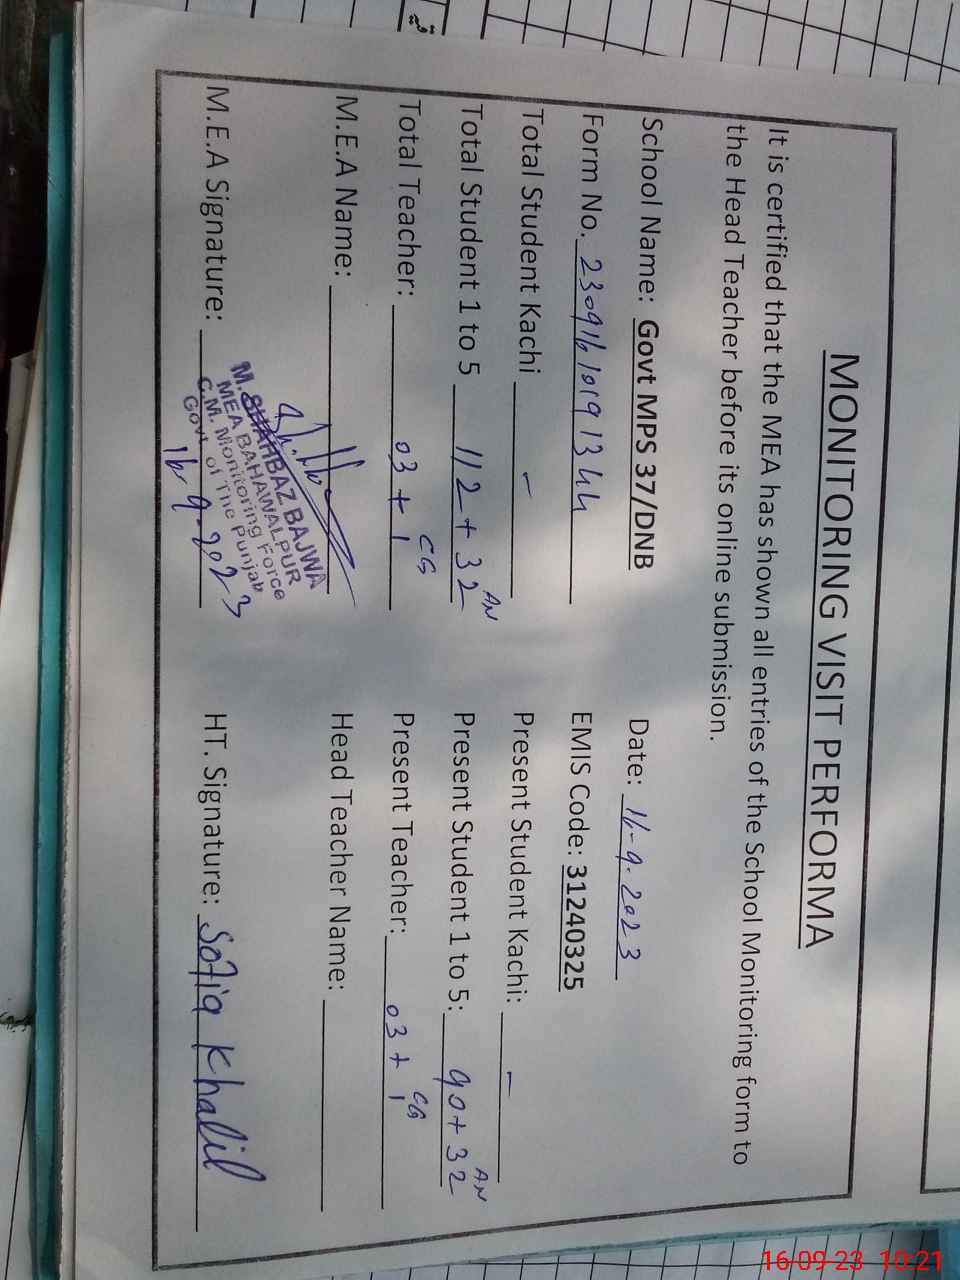 MONITORING VISIT PERFORMA
It is certified that the MEA has shown all entries of the School Monitoring form to
the Head Teacher before its online submission.
School Name: Govt MPS 37/DNB Date: 16-9-2023
Form No. 23091610191344 EMIS Code: 31240325
Total Student Kachi – Present Student Kachi: –
Total Student 1 to 5 112+32 AN Present Student 1 to 5: 90+32 AN
Total Teacher: 03+1 CG Present Teacher: 03+1 CG
M.E.A Name: Head Teacher Name:
M.E.A Signature: HT. Signature: Sofia Khalil
M. SHAHBAZ BAJWA
MEA BAHAWALPUR
C.M. Monitoring Force
Govt of The Punjab
16-9-2023
16-09-23 10:21